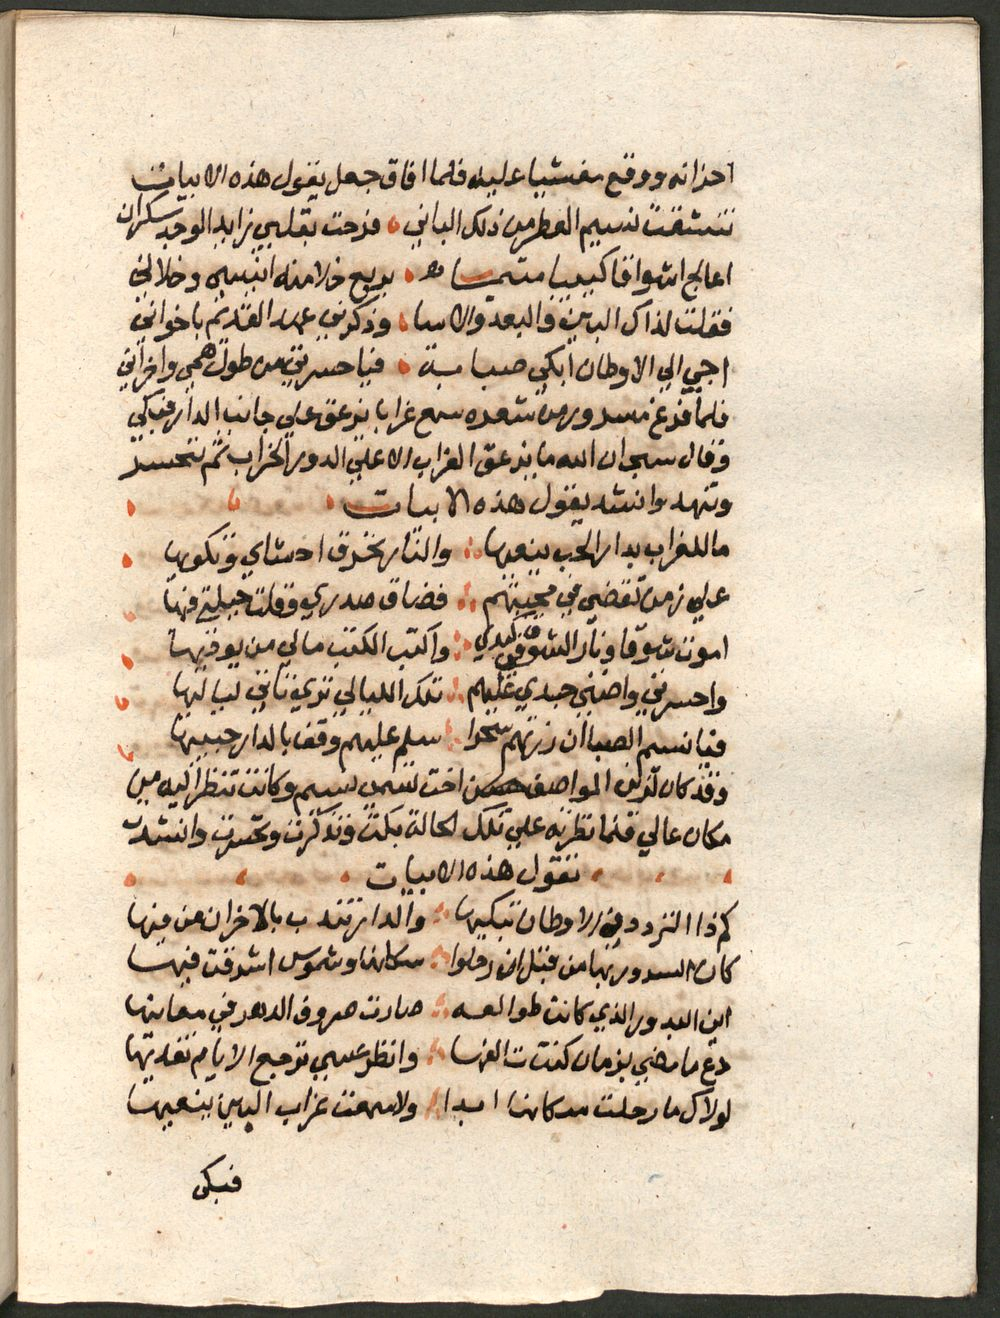 احزانه ووقع مغشيا عليه فلما افاق جعل يقول هذه الابيات
تنشقت نسيم العطر من ذلك الباني فزحت بقلبي زايد الوجد سكران
اعالج اشواقا كييبا متيما بربع خلا منه انيسي وخلاني
فقلت لذاك البين والبعد والاسا وذكرني عهد القديم باخواني
اجي الي الاوطان ابكي صبابة فيا حسرتي من طول همي واحزاني
فلما فرغ مسرور من شعره سمع غرابا يزعق علي جانب الدار فبكي
وقال سبحان الله ما يزعق الغراب الا علي الدور الخراب ثم تحسر
وتنهد وانشد يقول هذه الابيات
ما للغراب بدار الحب ينعيها والنار تحرق احشاي وتكويها
علي زمن تقضي في محبتهم فضاق صدري وقلت حيلتي فيها
اموت شوقا ونار الشوق في كبدي واكتب الكتب مالي من يوديها
واحسرتي واضني جسدي عليهم تلك الليالي تري تاتي لياليها
فيا نسيم الصبا ان زرتهم سحرا سلم عليهم وقف بالدار حييها
وقد كان لزين المواصف اخت تسمي نسيم وكانت تنظر اليه من
مكان عالي فلما نظرته علي تلك الحالة بكت وتذكرت وتحسرت وانشدت
تقول هذه الابيات
كم ذا التردد في الاوطان تبكيها والدار تندب بالاحزان من فيها
كان السرور بها من قبل ان رحلوا سكانها وشموس اشرقت فيها
اين البدور الذي كانت طوالعه صارت صروف الدهر في معانيها
دع ما مضي بزمان كنت تالفها وانظر عسي ترجع الايام تفديها
لولاك ما رحلت سكانها ابدا ولا سمعت غراب البين ينعيها
فبكي